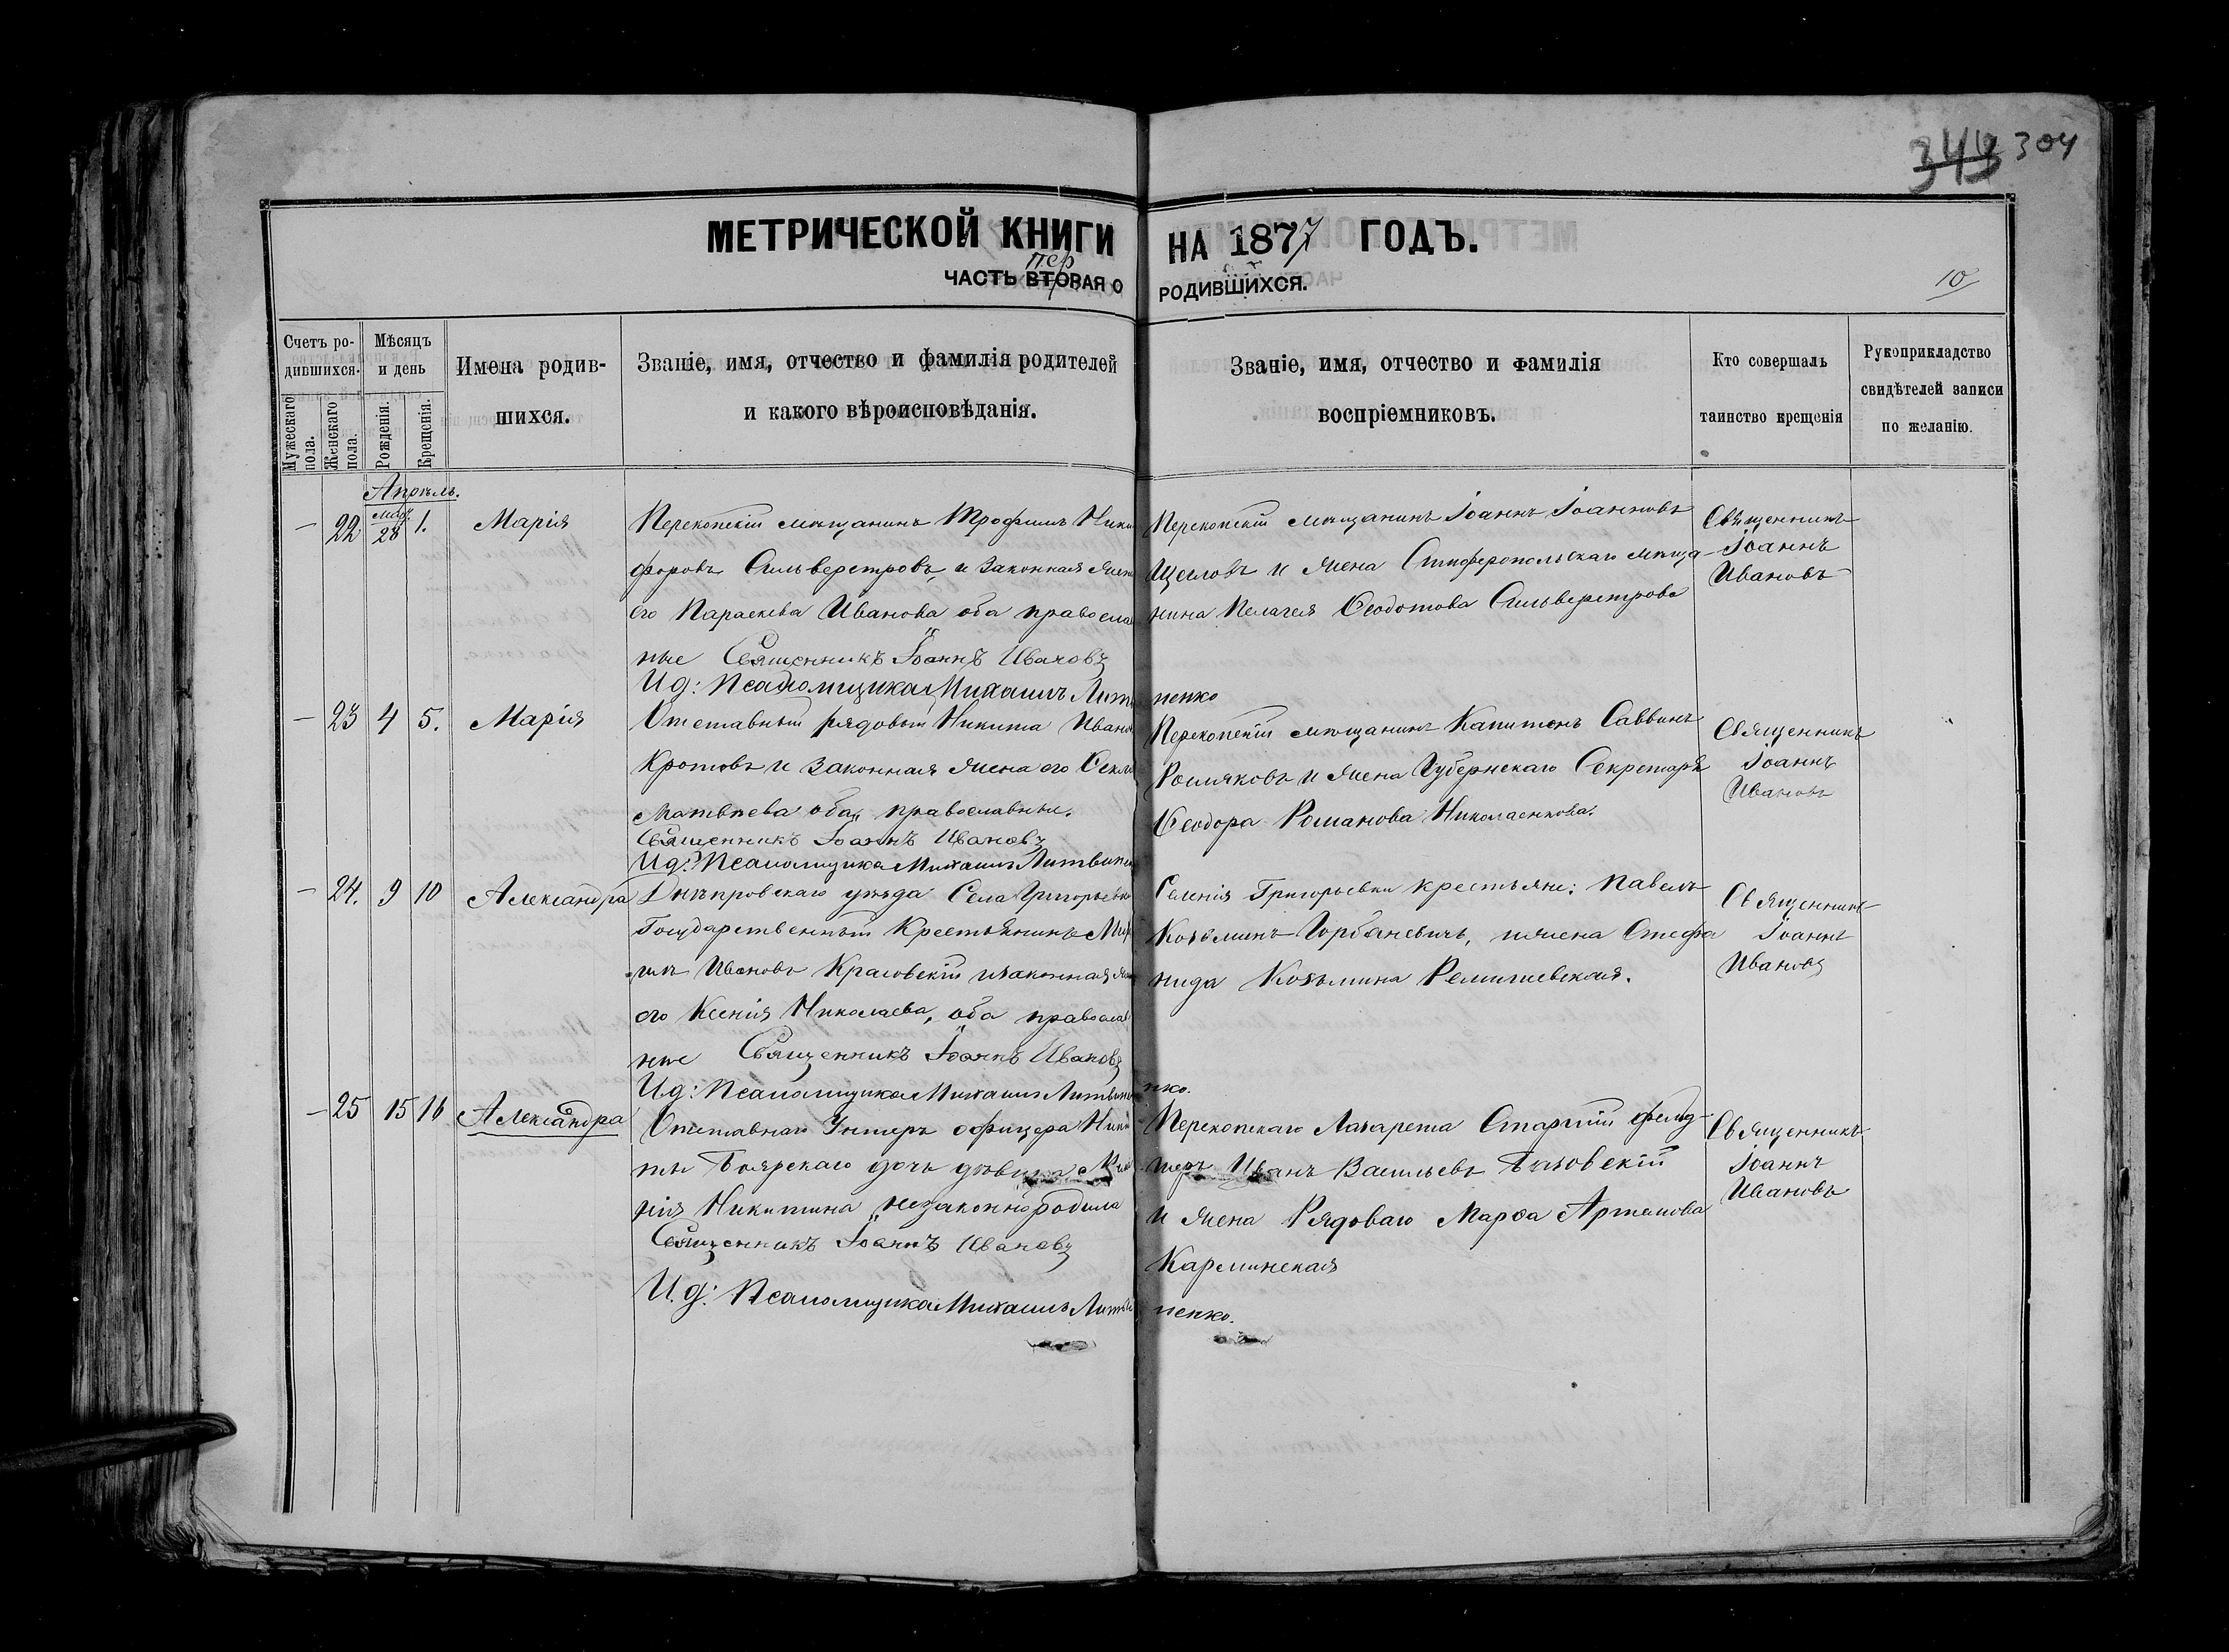 343 304
МЕТРИЧЕСКОЙ КНИГИ НА 1877 ГОДЪ.
пер
ЧАСТЬ ВТОРАЯ О РОДИВШИХСЯ.
10
Счетъ ро-
дившихся.
Мужескаго пола.
Женскаго пола.
Мѣсяцъ
и день
Рожденія.
Крещенія.
Имена родив-
шихся.
Званіе, имя, отчество и фамилія родителей
и какого вѣроисповѣданія.
Званіе, имя, отчество и фамилія
воспріемниковъ.
Кто совершалъ
таинство крещенія
Рукоприкладство
свидѣтелей записи
по желанію.
Апрѣль.
— 22 Мар. 28 1. Марія
Перекопскій мѣщанинъ Трофимъ Ники
форовъ Сильверстровъ, и законная жена
его Параскева Иванова оба правосла
ные Священникъ Іоаннъ Ивановъ
И д: Псаломщика Михаилъ Литвиненко
Перекопскій мѣщанинъ Іоаннъ Іоанновъ
Щегловъ и жена Симферопольскаго мѣща-
нина Пелагея Ѳеодотова Сильверстрова
Священникъ
Іоаннъ
Ивановъ
— 23 4 5. Марія
Отставный рядовый Никита Иванов
Кротовъ и законная жена его Ѳекла
Матвѣева оба православные.
Священникъ Іоаннъ Ивановъ
И д: Псаломщика Михаилъ Литвиненко
Перекопскій мѣщанинъ Капитонъ Саввинъ
и жена Губернскаго Секретаря
Ѳеодора Романова Николаенкова.
Священникъ
Іоаннъ
Ивановъ
— 24. 9 10 Александра
Днѣпровскаго уѣзда Села Григорьевки
Государственный Крестьянинъ
Ивановъ Красовскій и законная жена
его Ксенія Николаева, оба православ
ные Священникъ Іоаннъ Ивановъ
И д: Псаломщика Михаилъ Литвиненко.
Селенія Григорьевки крестьяне: Павелъ
Козьминъ Горбаневичъ, и жена Стефа
нида Козьмина
Священникъ
Іоаннъ
Ивановъ
— 25 15 16 Александра
Отставнаго Унтеръ офицера Ники
ты Боярскаго дочь дѣвица
Никитина незаконно родила
Священникъ Іоаннъ Ивановъ
И. д: Псаломщика Михаилъ Литвиненко.
Перекопскаго Лазарета Старшій фельд-
шеръ Иванъ Васильевъ
и жена Рядоваго Марѳа Артемова
Карминская
Священникъ
Іоаннъ
Ивановъ